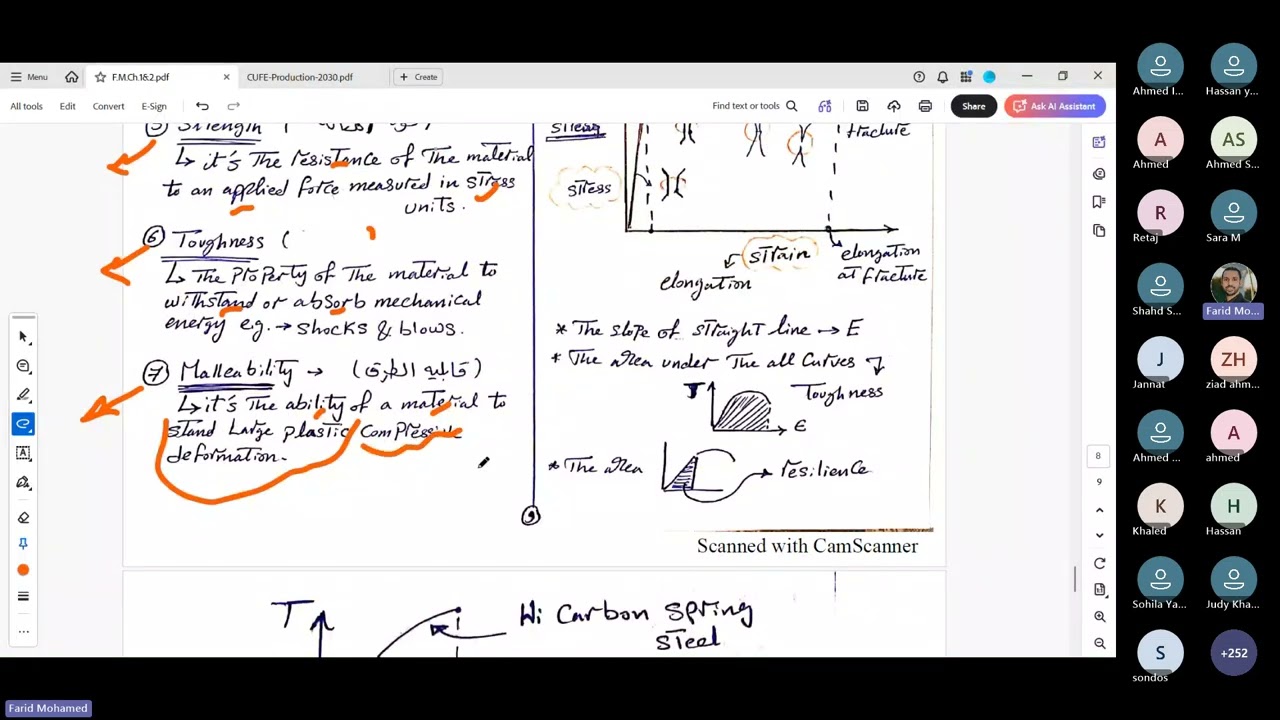 Menu
F.M.Ch.1&2.pdf
CUFE-Production-2030.pdf
Create
All tools
Edit
Convert
E-Sign
Find text or tools
Share
Ask AI Assistant
Strength (
↳ it's The resistance of The material
to an applied force measured in stress
units.
⑥ Toughness (
↳ The Property of The material to
withstand or absorb mechanical
energy e.g. → shocks & blows.
⑦ Malleability → (قابلية الطرق)
↳ it's The ability of a material to
stand Large plastic Compressive
deformation.
stress
fracture
stress
strain
elongation
elongation
at fracture
* The slope of straight line → E
* The area under The all Curves
Toughness
ε
* The area
resilience
9
Scanned with CamScanner
T
Hi Carbon spring
steel
8
9
Ahmed I...
Hassan y...
A
Ahmed
AS
Ahmed S...
R
Retaj
Sara M
Shahd S...
Farid Mo...
J
Jannat
ZH
ziad ahm...
Ahmed ...
A
ahmed
K
Khaled
H
Hassan
Sohila Ya...
Judy Kha...
S
sondos
+252
Farid Mohamed